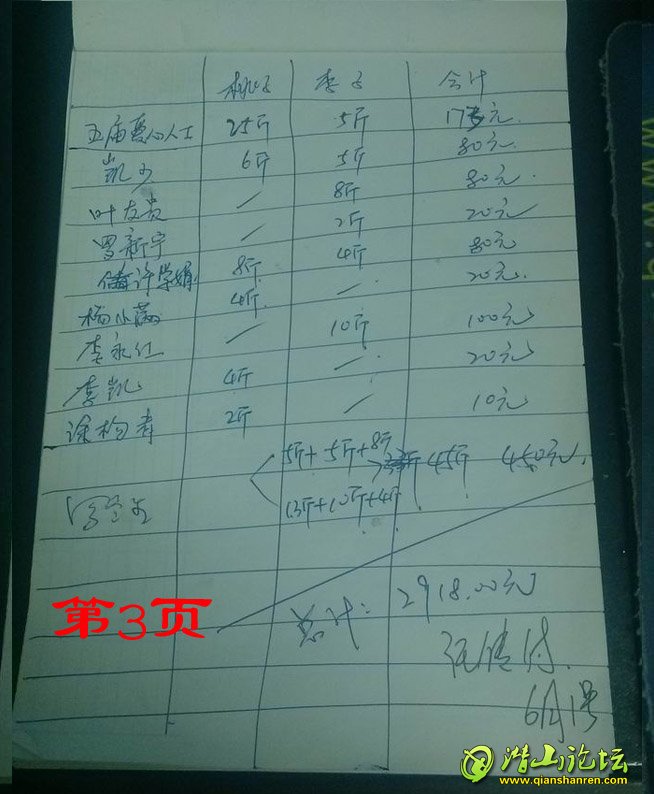 桃子 李子 合计
五庙爱心人士 25斤 5斤 175元
凯少 6斤 5斤 80元
叶友贵 / 8斤 80元
罗新宇 / 2斤 20元
储许学娟 8斤 4斤 80元
杨小满 4斤 / 20元
李永红 / 10斤 100元
李凯 4斤 / 20元
涂构寿 2斤 / 10元
5斤+5斤+8斤
45斤 450元
13斤+10斤+4斤
总计: 2918.00元
6月1号
第3页
潜山论坛
www.qianshanren.com